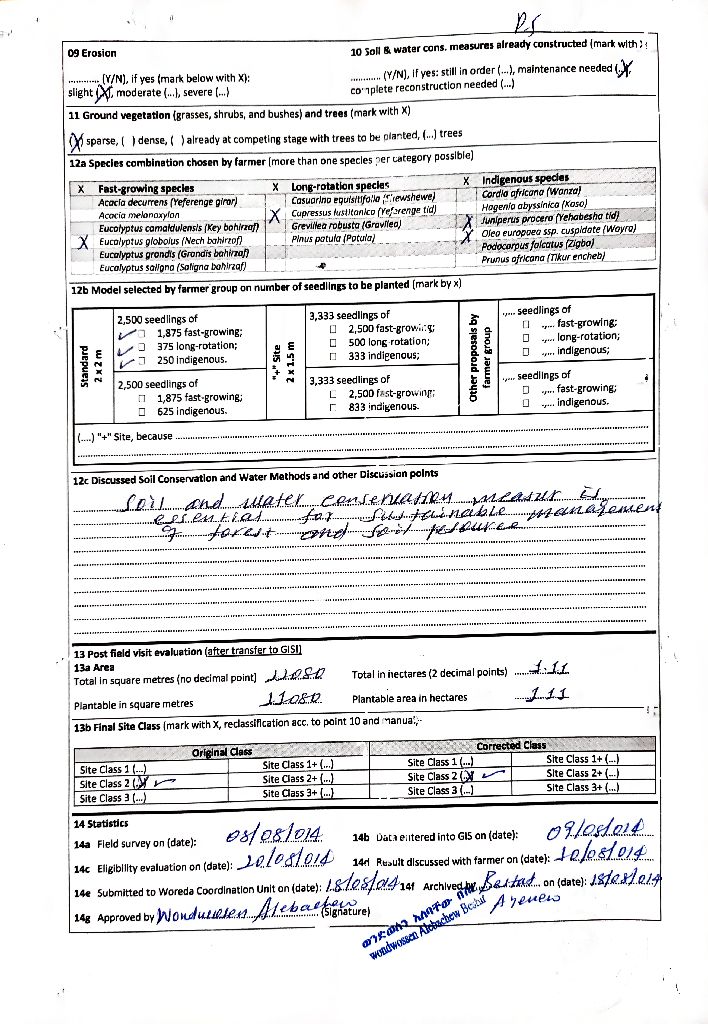 P5
09 Erosion
10 Soil & water cons. measures already constructed (mark with
........... (Y/N), if yes (mark below with X):
........... (Y/N), if yes: still in order (...), maintenance needed (X),
slight (X), moderate (...), severe (...)
complete reconstruction needed (...)
11 Ground vegetation (grasses, shrubs, and bushes) and trees (mark with X)
(X) sparse, ( ) dense, ( ) already at competing stage with trees to be planted, (...) trees
12a Species combination chosen by farmer (more than one species per category possible)
X Fast-growing species X Long-rotation species X Indigenous species
Acacia decurrens (Yeferenge girar) Casuarina equisitifolia (Shewshewe) Cordia africana (Wanza)
Acacia melanoxylon X Cupressus lustitanica (Yeferenge tid) Hagenia abyssinica (Koso)
Eucalyptus camaldulensis (Key bahirzaf) Grevillea robusta (Gravilea) X Juniperus procera (Yehabesha tid)
X Eucalyptus globolus (Nech bahirzaf) Pinus patula (Patula) X Olea europaea ssp. cuspidate (Wayra)
Eucalyptus grandis (Grandis bahirzaf) Podocarpus falcatus (Zigba)
Eucalyptus saligna (Saligna bahirzaf) Prunus africana (Tikur encheb)
12b Model selected by farmer group on number of seedlings to be planted (mark by x)
Standard
2 x 2 m
2,500 seedlings of
✓ □ 1,875 fast-growing;
✓ □ 375 long-rotation;
✓ □ 250 indigenous.
2,500 seedlings of
□ 1,875 fast-growing;
□ 625 indigenous.
"+" Site
2 x 1.5 m
3,333 seedlings of
□ 2,500 fast-growing;
□ 500 long-rotation;
□ 333 indigenous;
3,333 seedlings of
□ 2,500 fast-growing;
□ 833 indigenous.
Other proposals by
farmer group
.,... seedlings of
□ .,... fast-growing;
□ .,... long-rotation;
□ .,... indigenous;
.,... seedlings of
□ .,... fast-growing;
□ .,... indigenous.
(....) "+" Site, because
12c Discussed Soil Conservation and Water Methods and other Discussion points
Soil and water conservation measur is
essential for sustainable management
of forest and soil resource
13 Post field visit evaluation (after transfer to GIS!)
13a Area
Total in square metres (no decimal point) 11080 Total in hectares (2 decimal points) 1.11
Plantable in square metres 11080 Plantable area in hectares 1.11
13b Final Site Class (mark with X, reclassification acc. to point 10 and manual)
Original Class Corrected Class
Site Class 1 (...) Site Class 1+ (...) Site Class 1 (...) Site Class 1+ (...)
Site Class 2 (X) ✓ Site Class 2+ (...) Site Class 2 (X) ✓ Site Class 2+ (...)
Site Class 3 (...) Site Class 3+ (...) Site Class 3 (...) Site Class 3+ (...)
14 Statistics
14a Field survey on (date): 08/08/014 14b Data entered into GIS on (date): 09/08/014
14c Eligibility evaluation on (date): 10/08/014 14d Result discussed with farmer on (date): 10/08/014
14e Submitted to Woreda Coordination Unit on (date): 18/08/014 14f Archived by Bestat on (date): 18/08/014
Ayenew
14g Approved by Wondwossen Alebachew (Signature)
wondwossen Alebachew Bestat